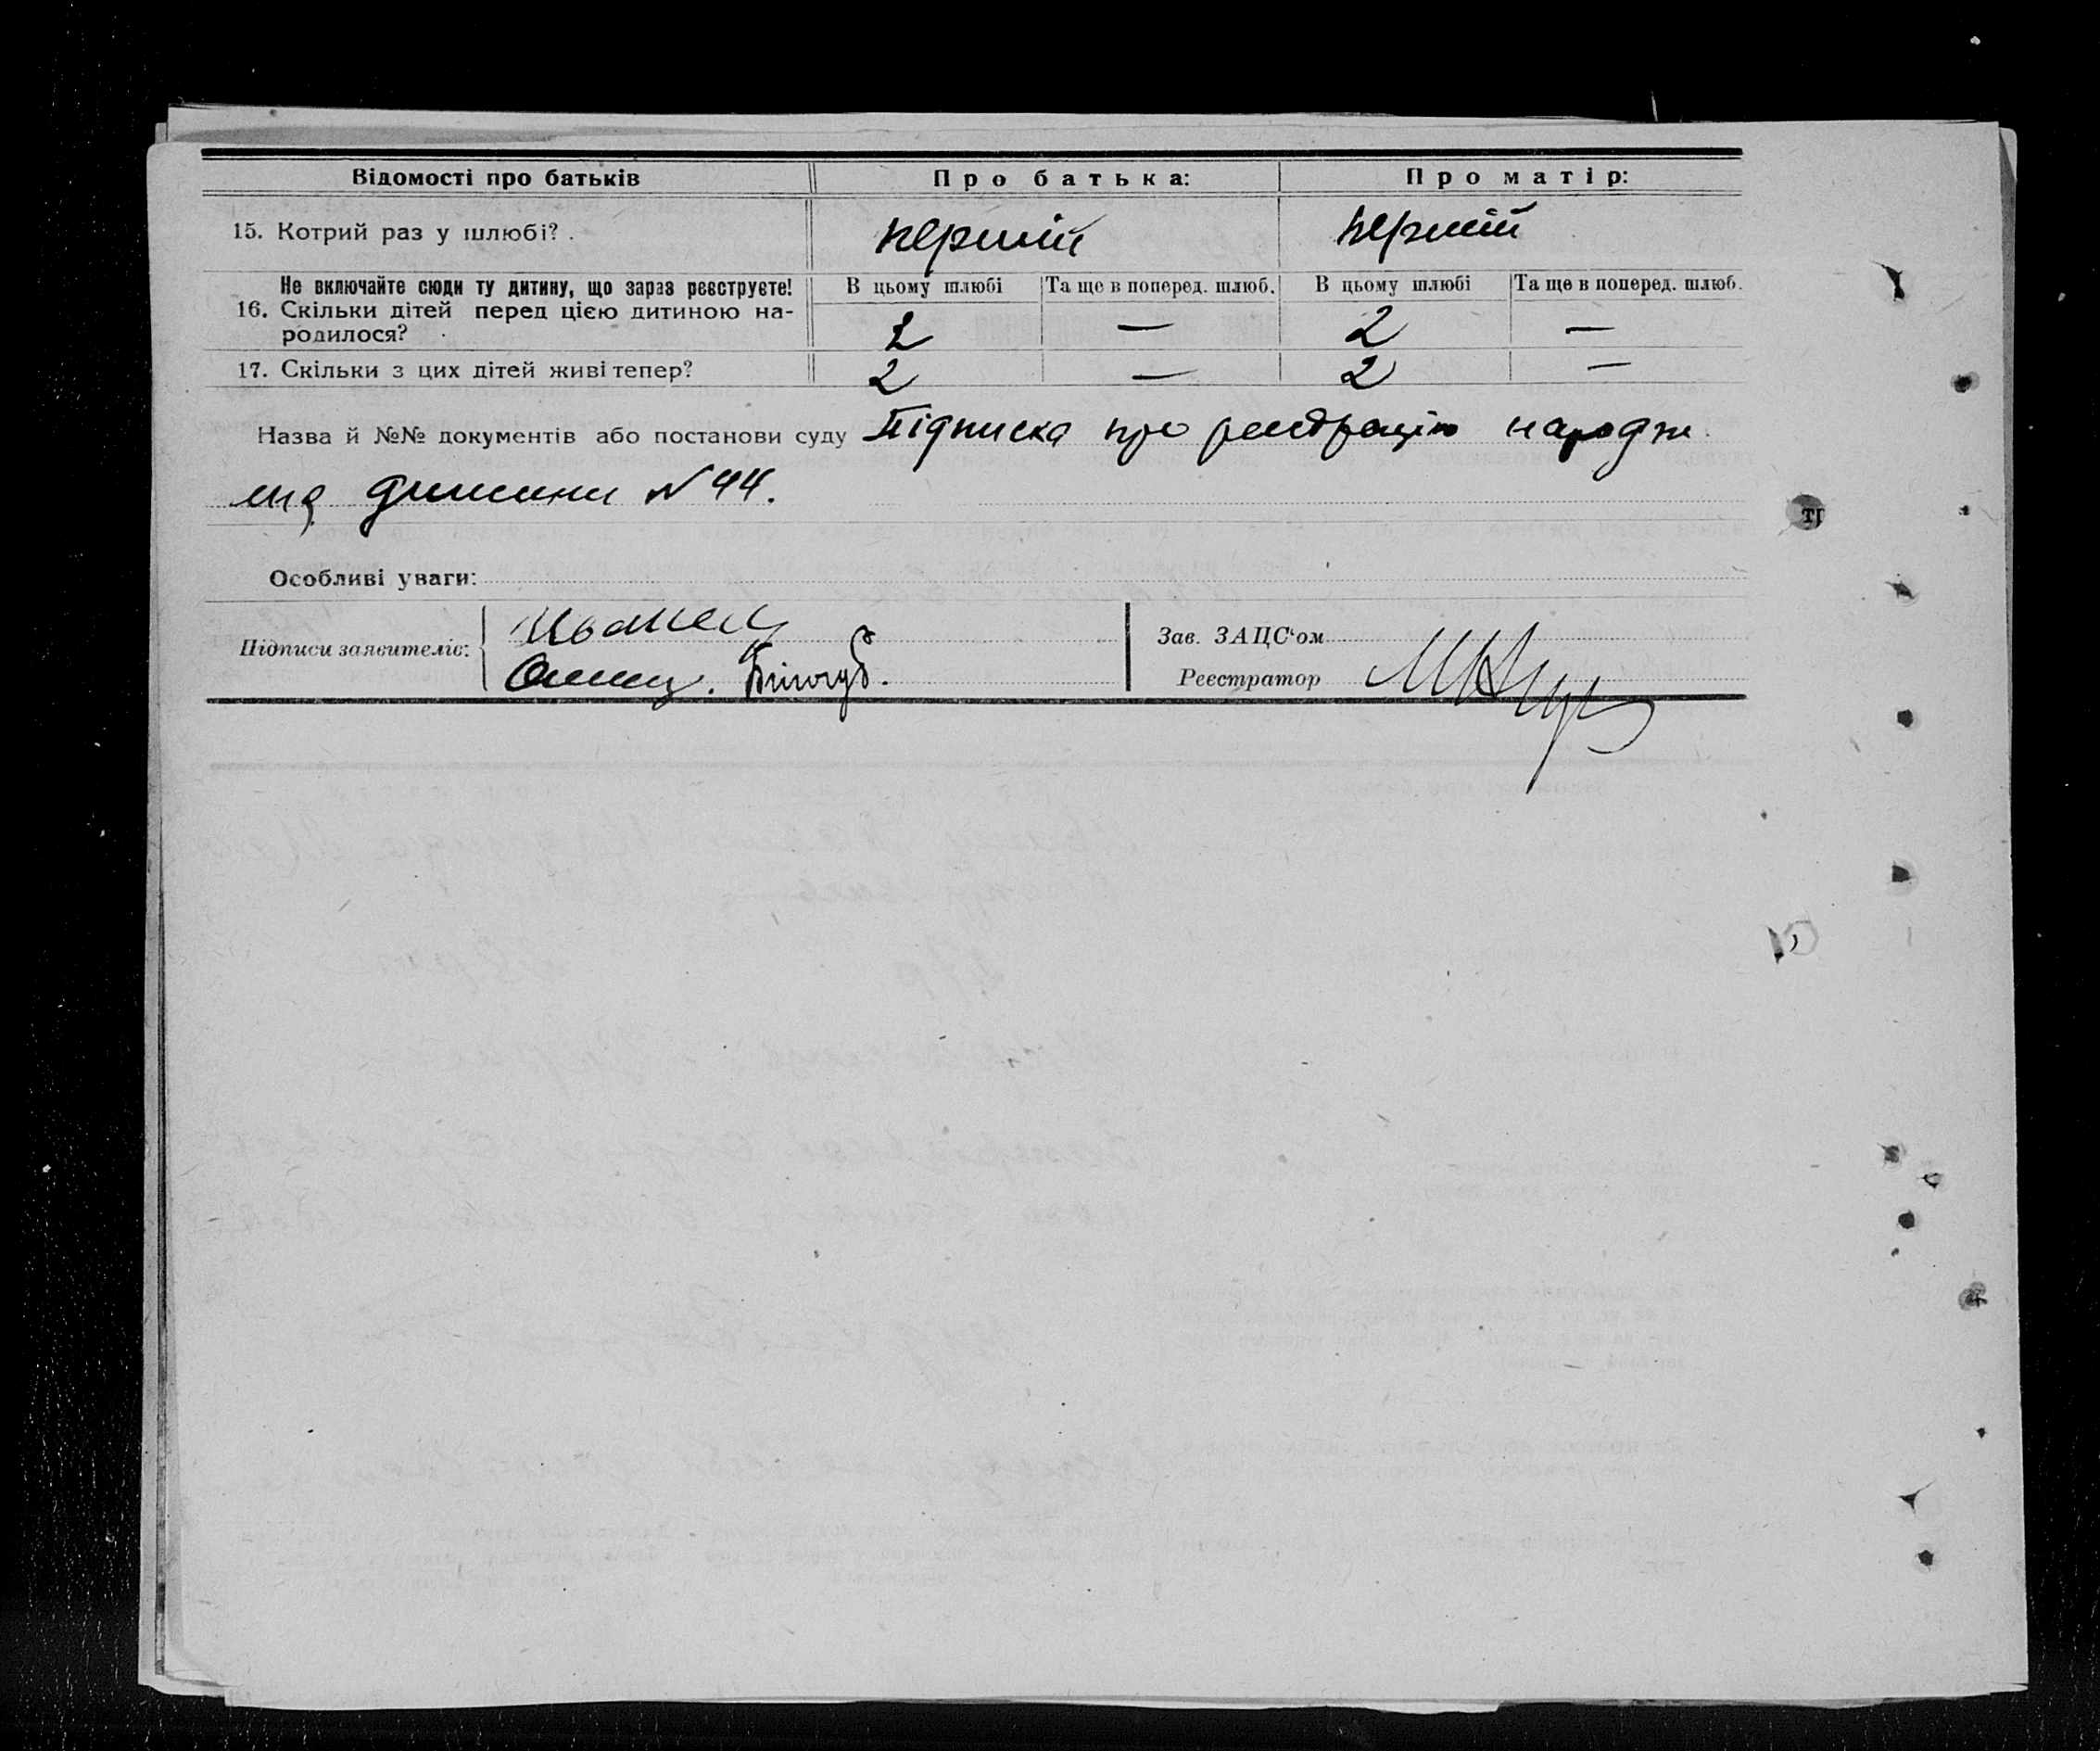 Відомості про батьків Про батька: Про матір:
15. Котрий раз у шлюбі? . перший перший
Не включайте сюди ту дитину, що зараз реєструєте! В цьому шлюбі Та ще в поперед. шлюб. В цьому шлюбі Та ще в поперед. шлюб.
16. Скільки дітей перед цією дитиною на-
родилося? 2 — 2 —
17. Скільки з цих дітей живі тепер? 2 — 2 —
Назва й №№ документів або постанови суду Підписка про реєстрацію народже
ння дитини N 44.
Особливі уваги:
Підписи заявителів: Зав. ЗАЦС'ом
Реєстратор